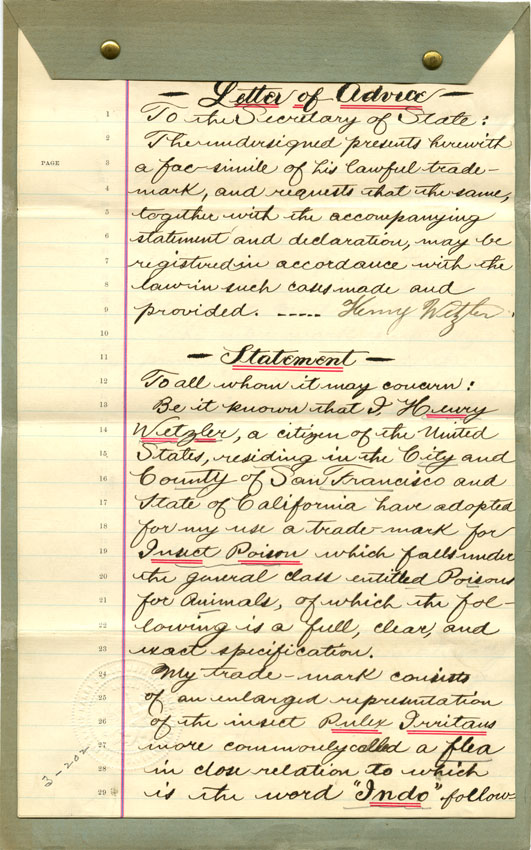 — Letter of Advice —
1 To the Secretary of State:
2 The undersigned presents herewith
PAGE 3 a fac-simile of his lawful trade-
4 mark, and requests that the same,
5 together with the accompanying
6 statement and declaration, may be
7 registered in accordance with the
8 law in such cases made and
9 provided. ----- Henry Wetzler.
10
11 — Statement —
12 To all whom it may concern:
13 Be it known that I, Henry
14 Wetzler, a citizen of the United
15 States, residing in the City and
16 County of San Francisco and
17 State of California have adopted
18 for my use a trade-mark for
19 Insect Poison which falls under
20 the general class entitled Poisons
21 for Animals, of which the fol-
22 lowing is a full, clear, and
23 exact specification.
24 My trade-mark consists
25 of an enlarged representation
26 of the insect Pulex Irritans
27 more commonly called a flea
28 in close relation to which
29 is the word "Indo" follow-
3-202